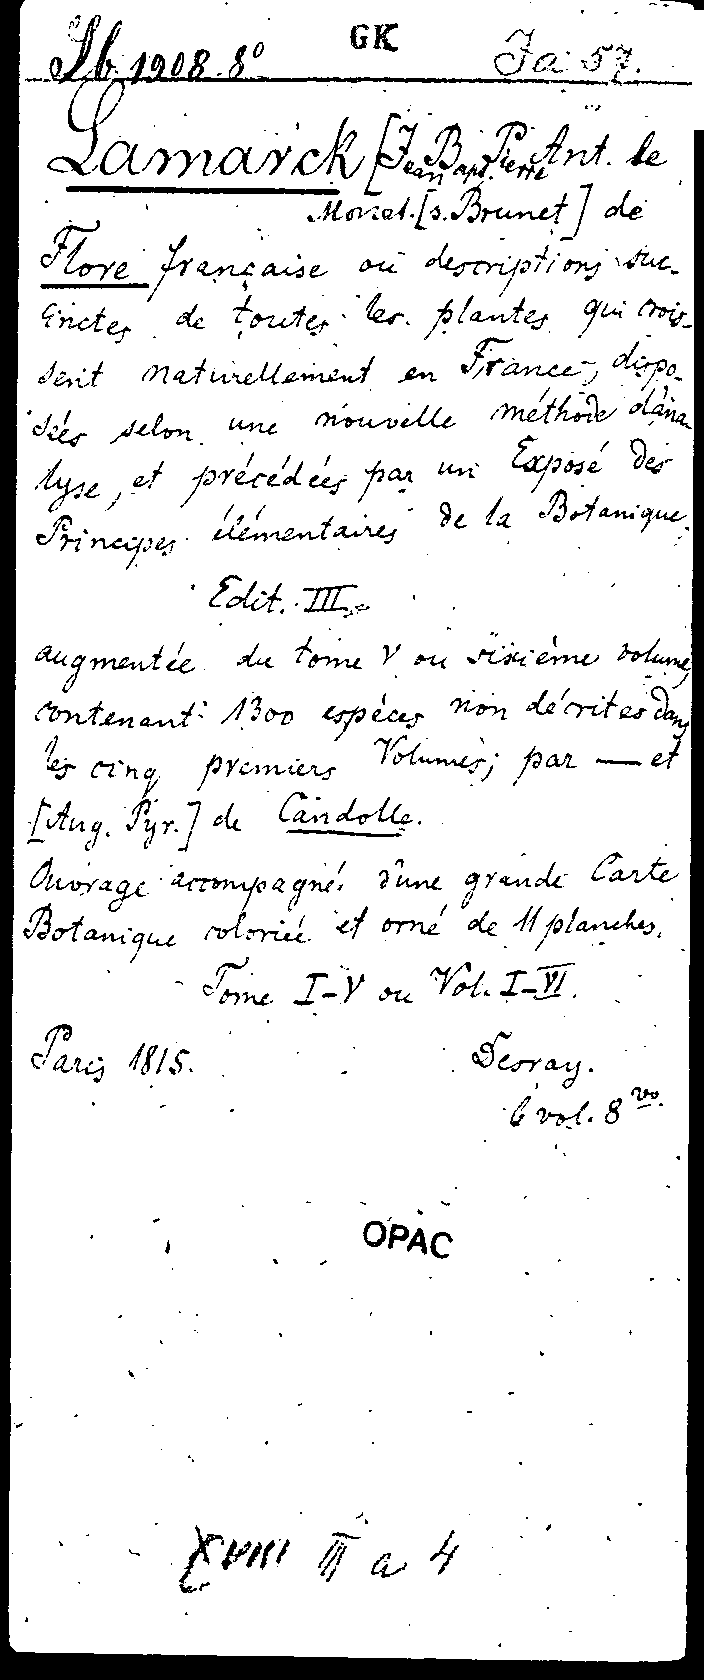 Lb 1908. 8° GK Ja 57.
Lamarck [J. B. Pierre Ant. le
Jean Bapt.
Monet. [s. Brunet] de
Flore française ou descriptions suc-
cinctes de toutes les plantes qui crois-
sent naturellement en France, dispo-
sées selon une nouvelle méthode d'ana-
lyse, et précédées par un Exposé des
Principes élémentaires de la Botanique.
Edit. III.
augmentée du tome V ou sixième volume,
contenant 1300 espèces non décrites dans
les cinq premiers Volumes; par — et
[Aug. Pyr.] de Candolle.
Ouvrage accompagné d'une grande Carte
Botanique coloriée et orné de 11 planches.
Tome I-V ou Vol. I-VI.
Paris 1815. Desray.
6 vol. 8vo.
OPAC
XVIII II a 4